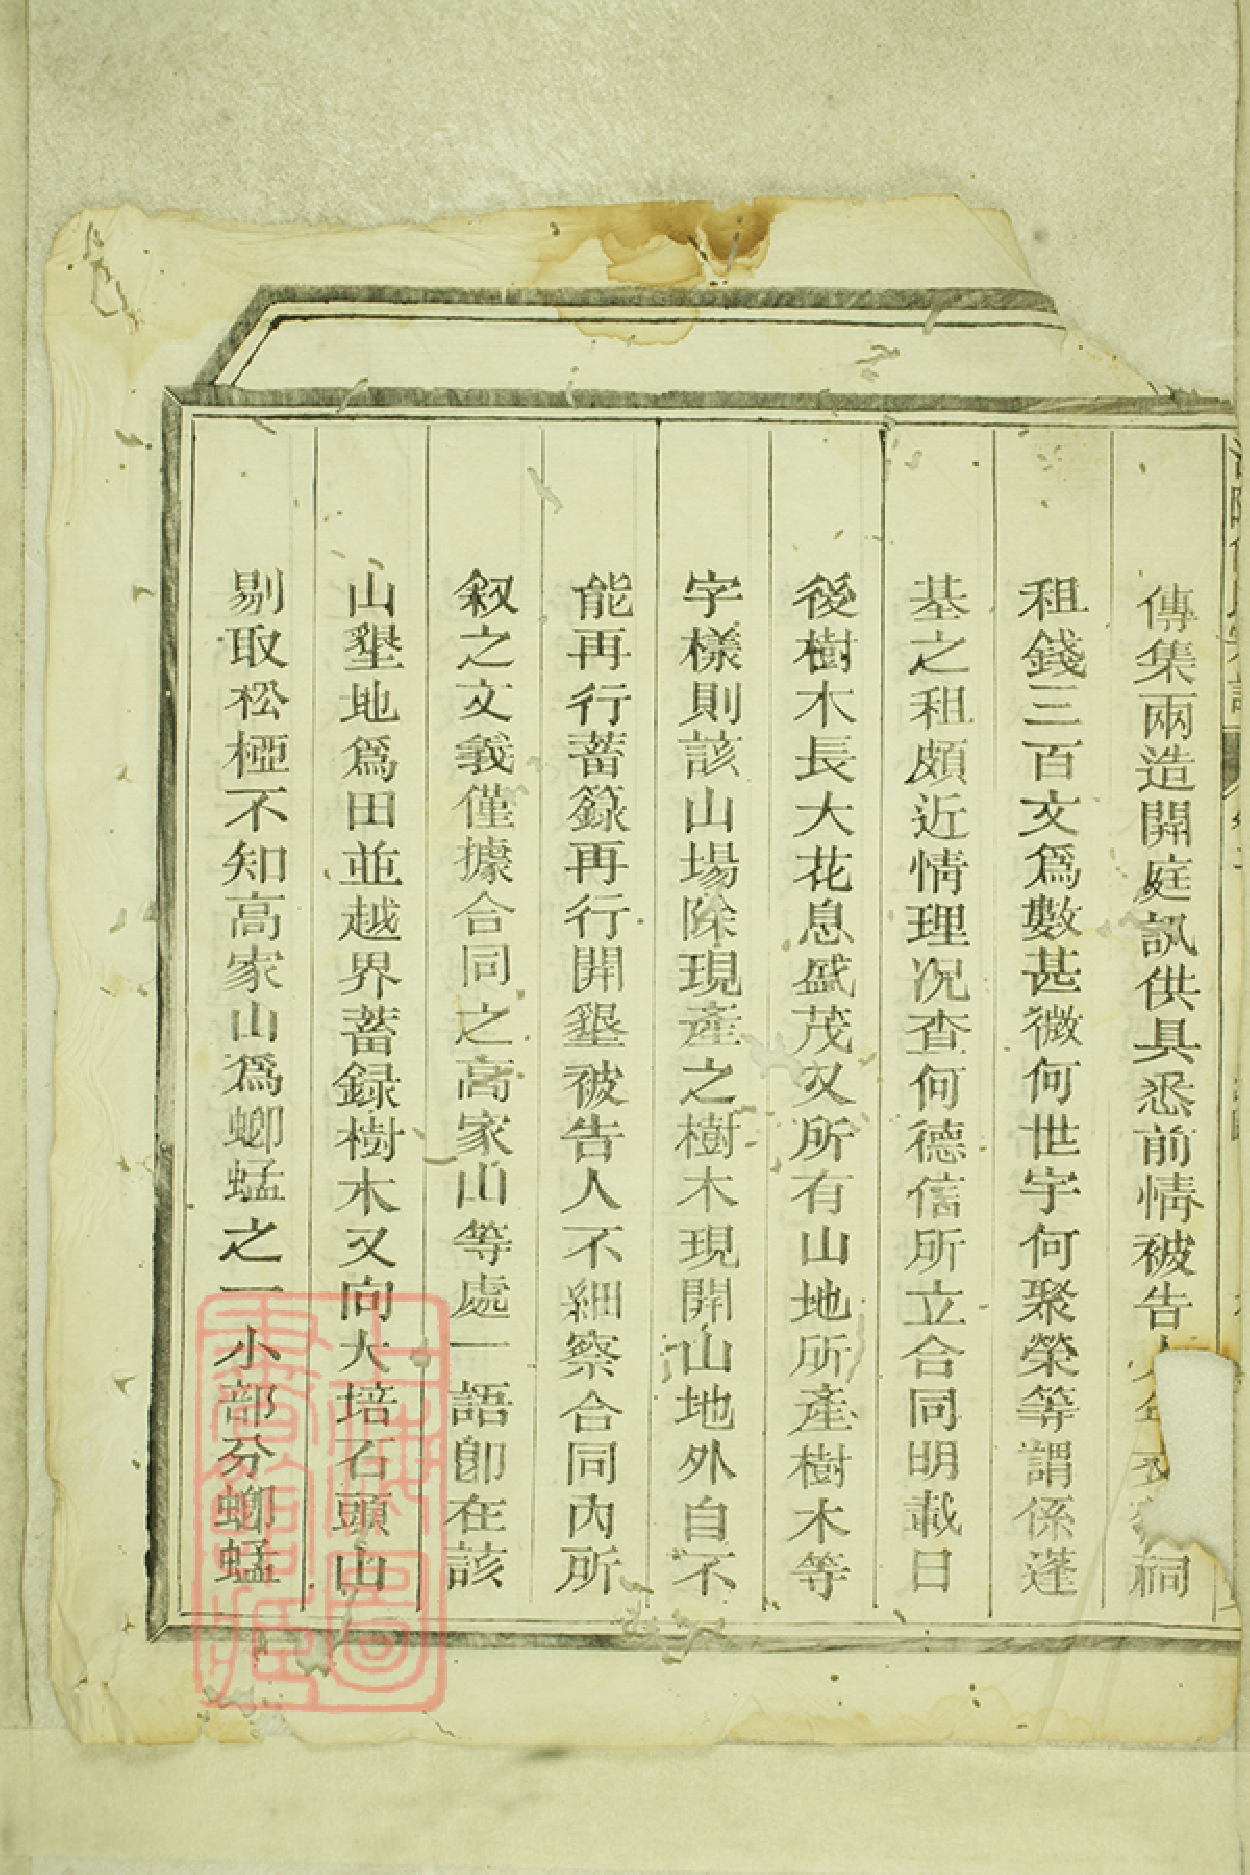 傳集兩造開庭訊供具悉前情被告人年文祠
租錢三百文爲數甚微何世宇何聚榮等謂係蓬
基之租頗近情理况查何德信所立合同明載日
後樹木長大花息盛茂又所有山地所產樹木等
字樣則該山場除現產之樹木現開山地外自不
能再行蓄籙再行開墾被告人不細察合同內所
叙之文義僅據合同之高家山等處一語卽在該
山墾地爲田並越界蓄録樹木又向大培石頭山
剔取松椏不知高家山爲螂蜢之一小部分螂蜢
上海圖書館藏